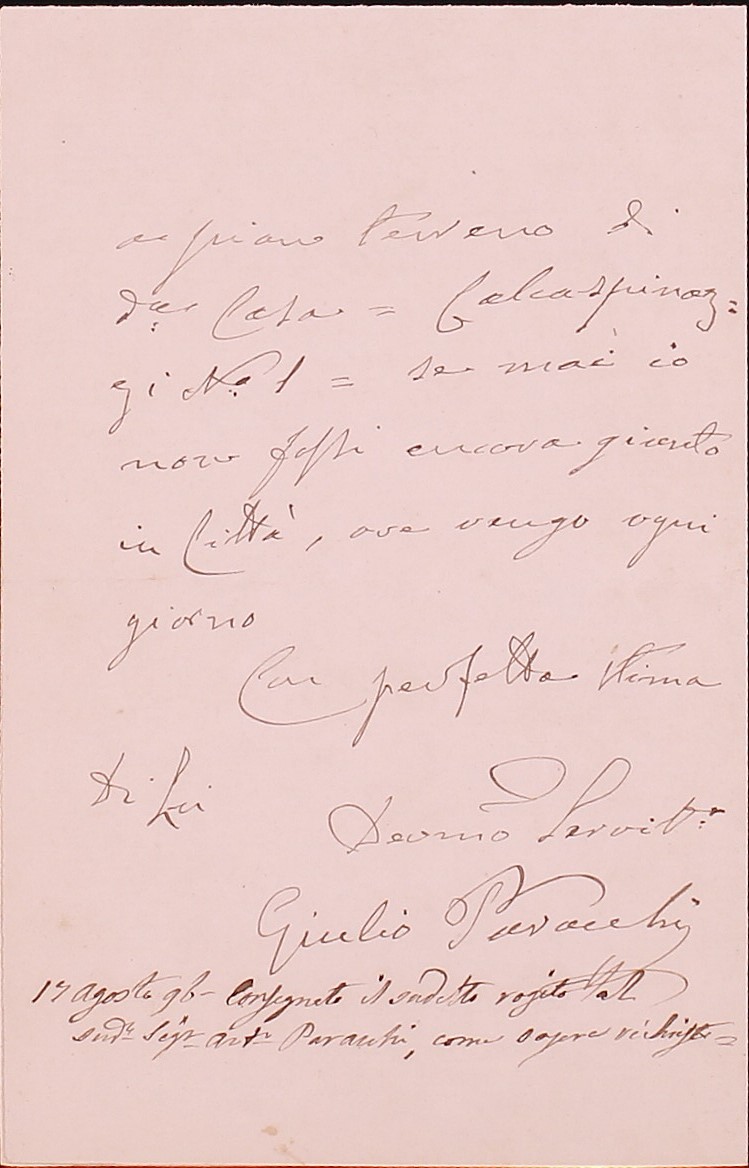 al piano terreno di
d.a Casa = Calcaspinaz=
zi N.o 1 = se mai io
non fossi ancora giunto
in Città, ove vengo ogni
giorno
Con perfetta stima
Di Lei
Devmo Servit.e
Giulio Paracchi
17 agosto 96 - Consegnato il sudetto rogito al
sud.o Sig.r Paracchi, come sopra richiesto =